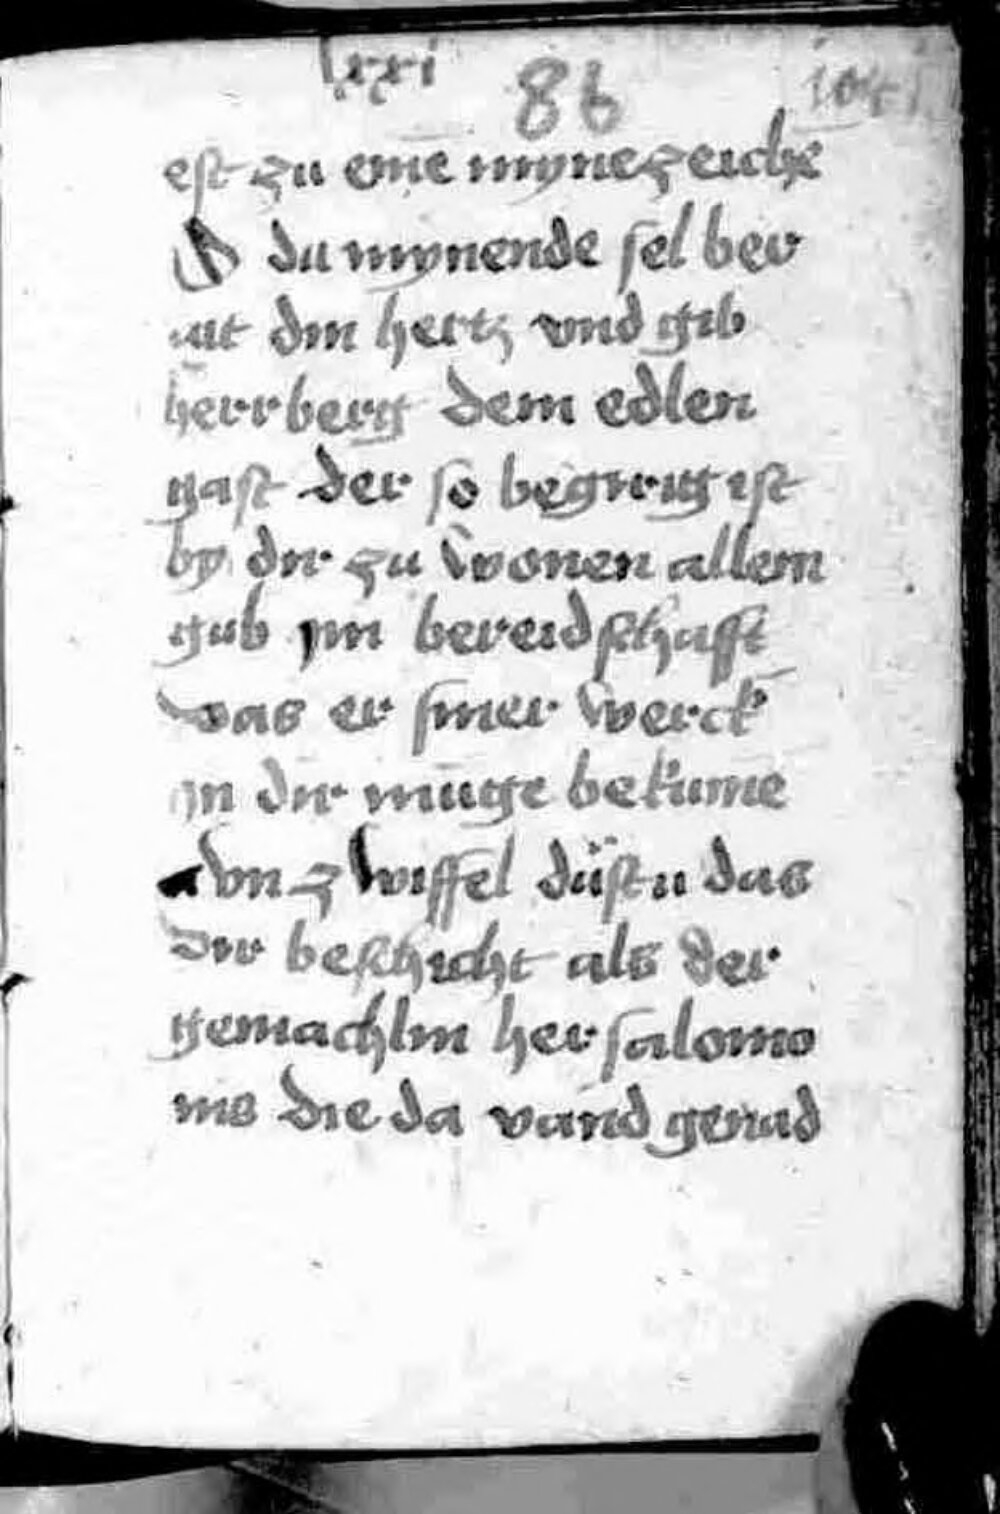 lxxi 86
est zu eine mynezeiche
O du mynende sel bev
din hertz vnd gib
herrberg dem edlen
gast der so begirig ist
by dir zu wonen allein
gib jm bereidschafft
das er siner werck
jn dir muge bekume
Vnzwiffel düstu das
Dir beschicht als der
gemachlin her salomo
nis die da vand genad